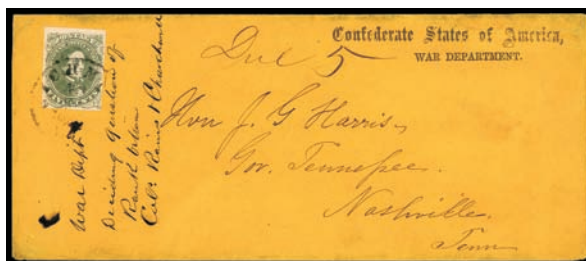 Confederate States of America,
WAR DEPARTMENT.
Due 5
Hon J. G Harris
Gov. Tennessee
Nashville
Tenn
War Dept
Deciding question of
Rank between
Cols Rains &